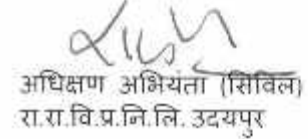 अधिक्षण अभियंता (सिविल)
रा.रा.वि.प्र.नि.लि. उदयपुर